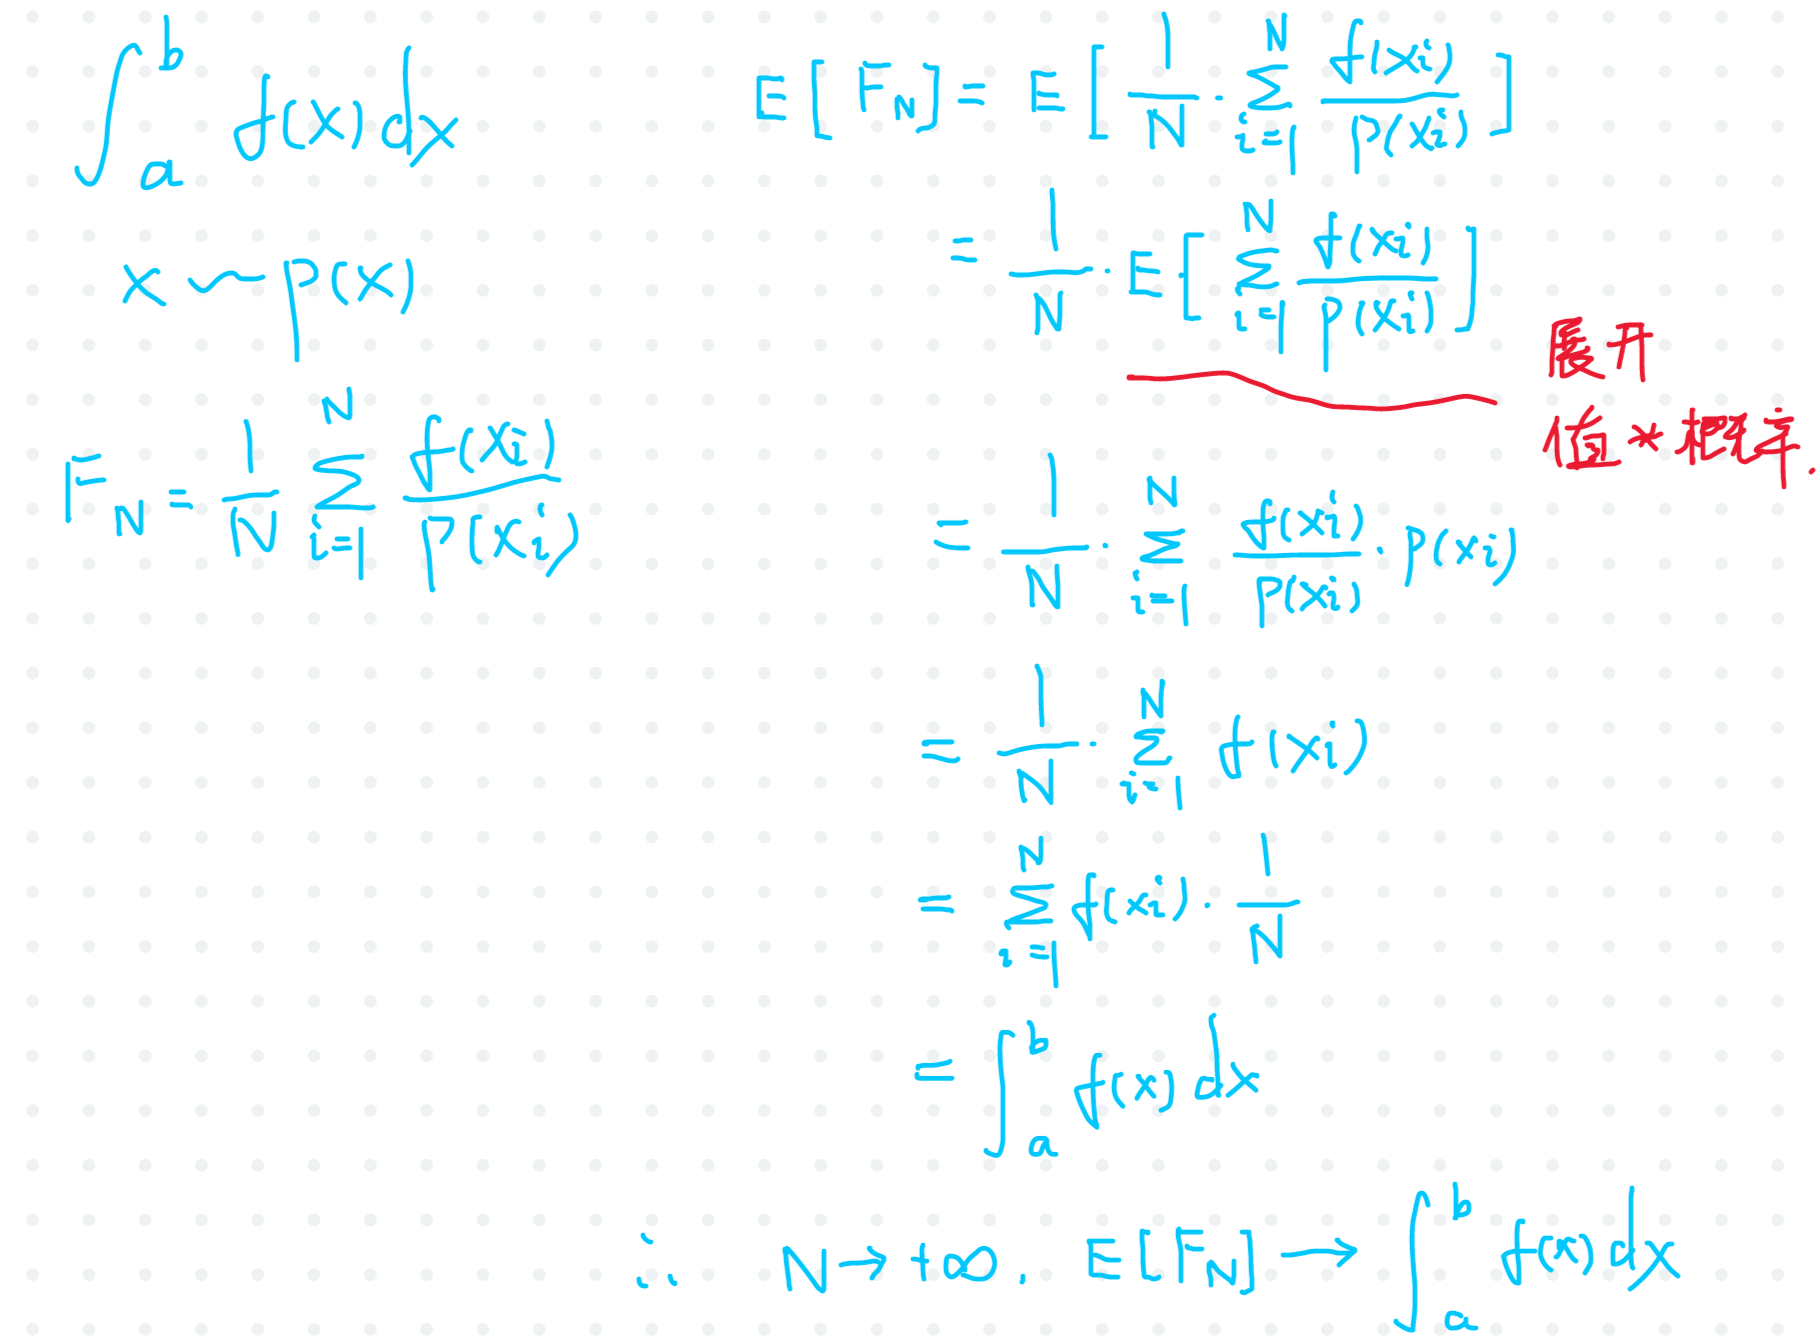 ∫_a^b f(x)dx
x ~ p(x)
F_N = 1/N ∑_{i=1}^N f(xi)/p(xi)
E[F_N] = E[1/N · ∑_{i=1}^N f(xi)/p(xi)]
= 1/N · E[∑_{i=1}^N f(xi)/p(xi)]
展开
值*概率.
= 1/N · ∑_{i=1}^N f(xi)/p(xi) · p(xi)
= 1/N · ∑_{i=1}^N f(xi)
= ∑_{i=1}^N f(xi) · 1/N
= ∫_a^b f(x)dx
∴ N→+∞, E[F_N] → ∫_a^b f(x)dx